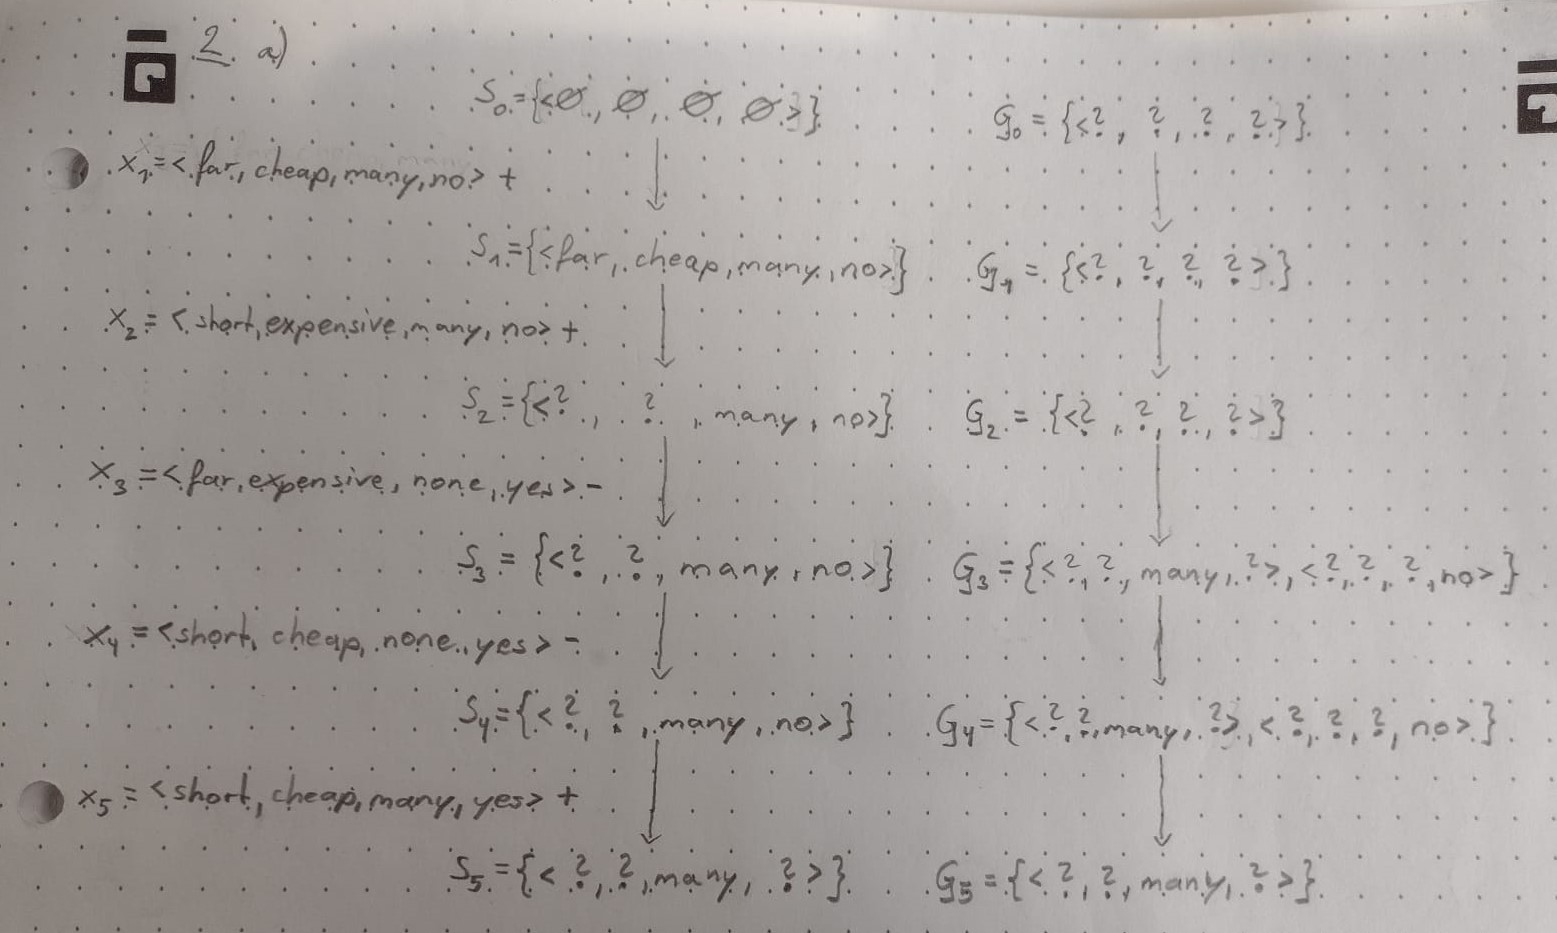 2. a)
S₀={<∅, ∅, ∅, ∅>} G₀={<?, ?, ?, ?>}
x₁=<far, cheap, many, no> +
S₁={<far, cheap, many, no>} G₁={<?, ?, ?, ?>}
x₂=<short, expensive, many, no> +
S₂={<?, ?, many, no>} G₂={<?, ?, ?, ?>}
x₃=<far, expensive, none, yes> -
S₃={<?, ?, many, no>} G₃={<?, ?, many, ?>, <?, ?, ?, no>}
x₄=<short, cheap, none, yes> -
S₄={<?, ?, many, no>} G₄={<?, ?, many, ?>, <?, ?, ?, no>}
x₅=<short, cheap, many, yes> +
S₅={<?, ?, many, ?>} G₅={<?, ?, many, ?>}